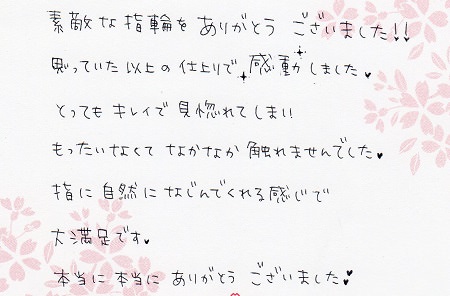 素敵な指輪を ありがとう ございました!!
思っていた以上の仕上りで 感動しました♥
とっても キレイで 見惚れてしまい
もったいなくて なかなか 触れませんでした♥
指に 自然に なじんでくれる感じで
大満足です♥
本当に 本当に ありがとう ございました♥